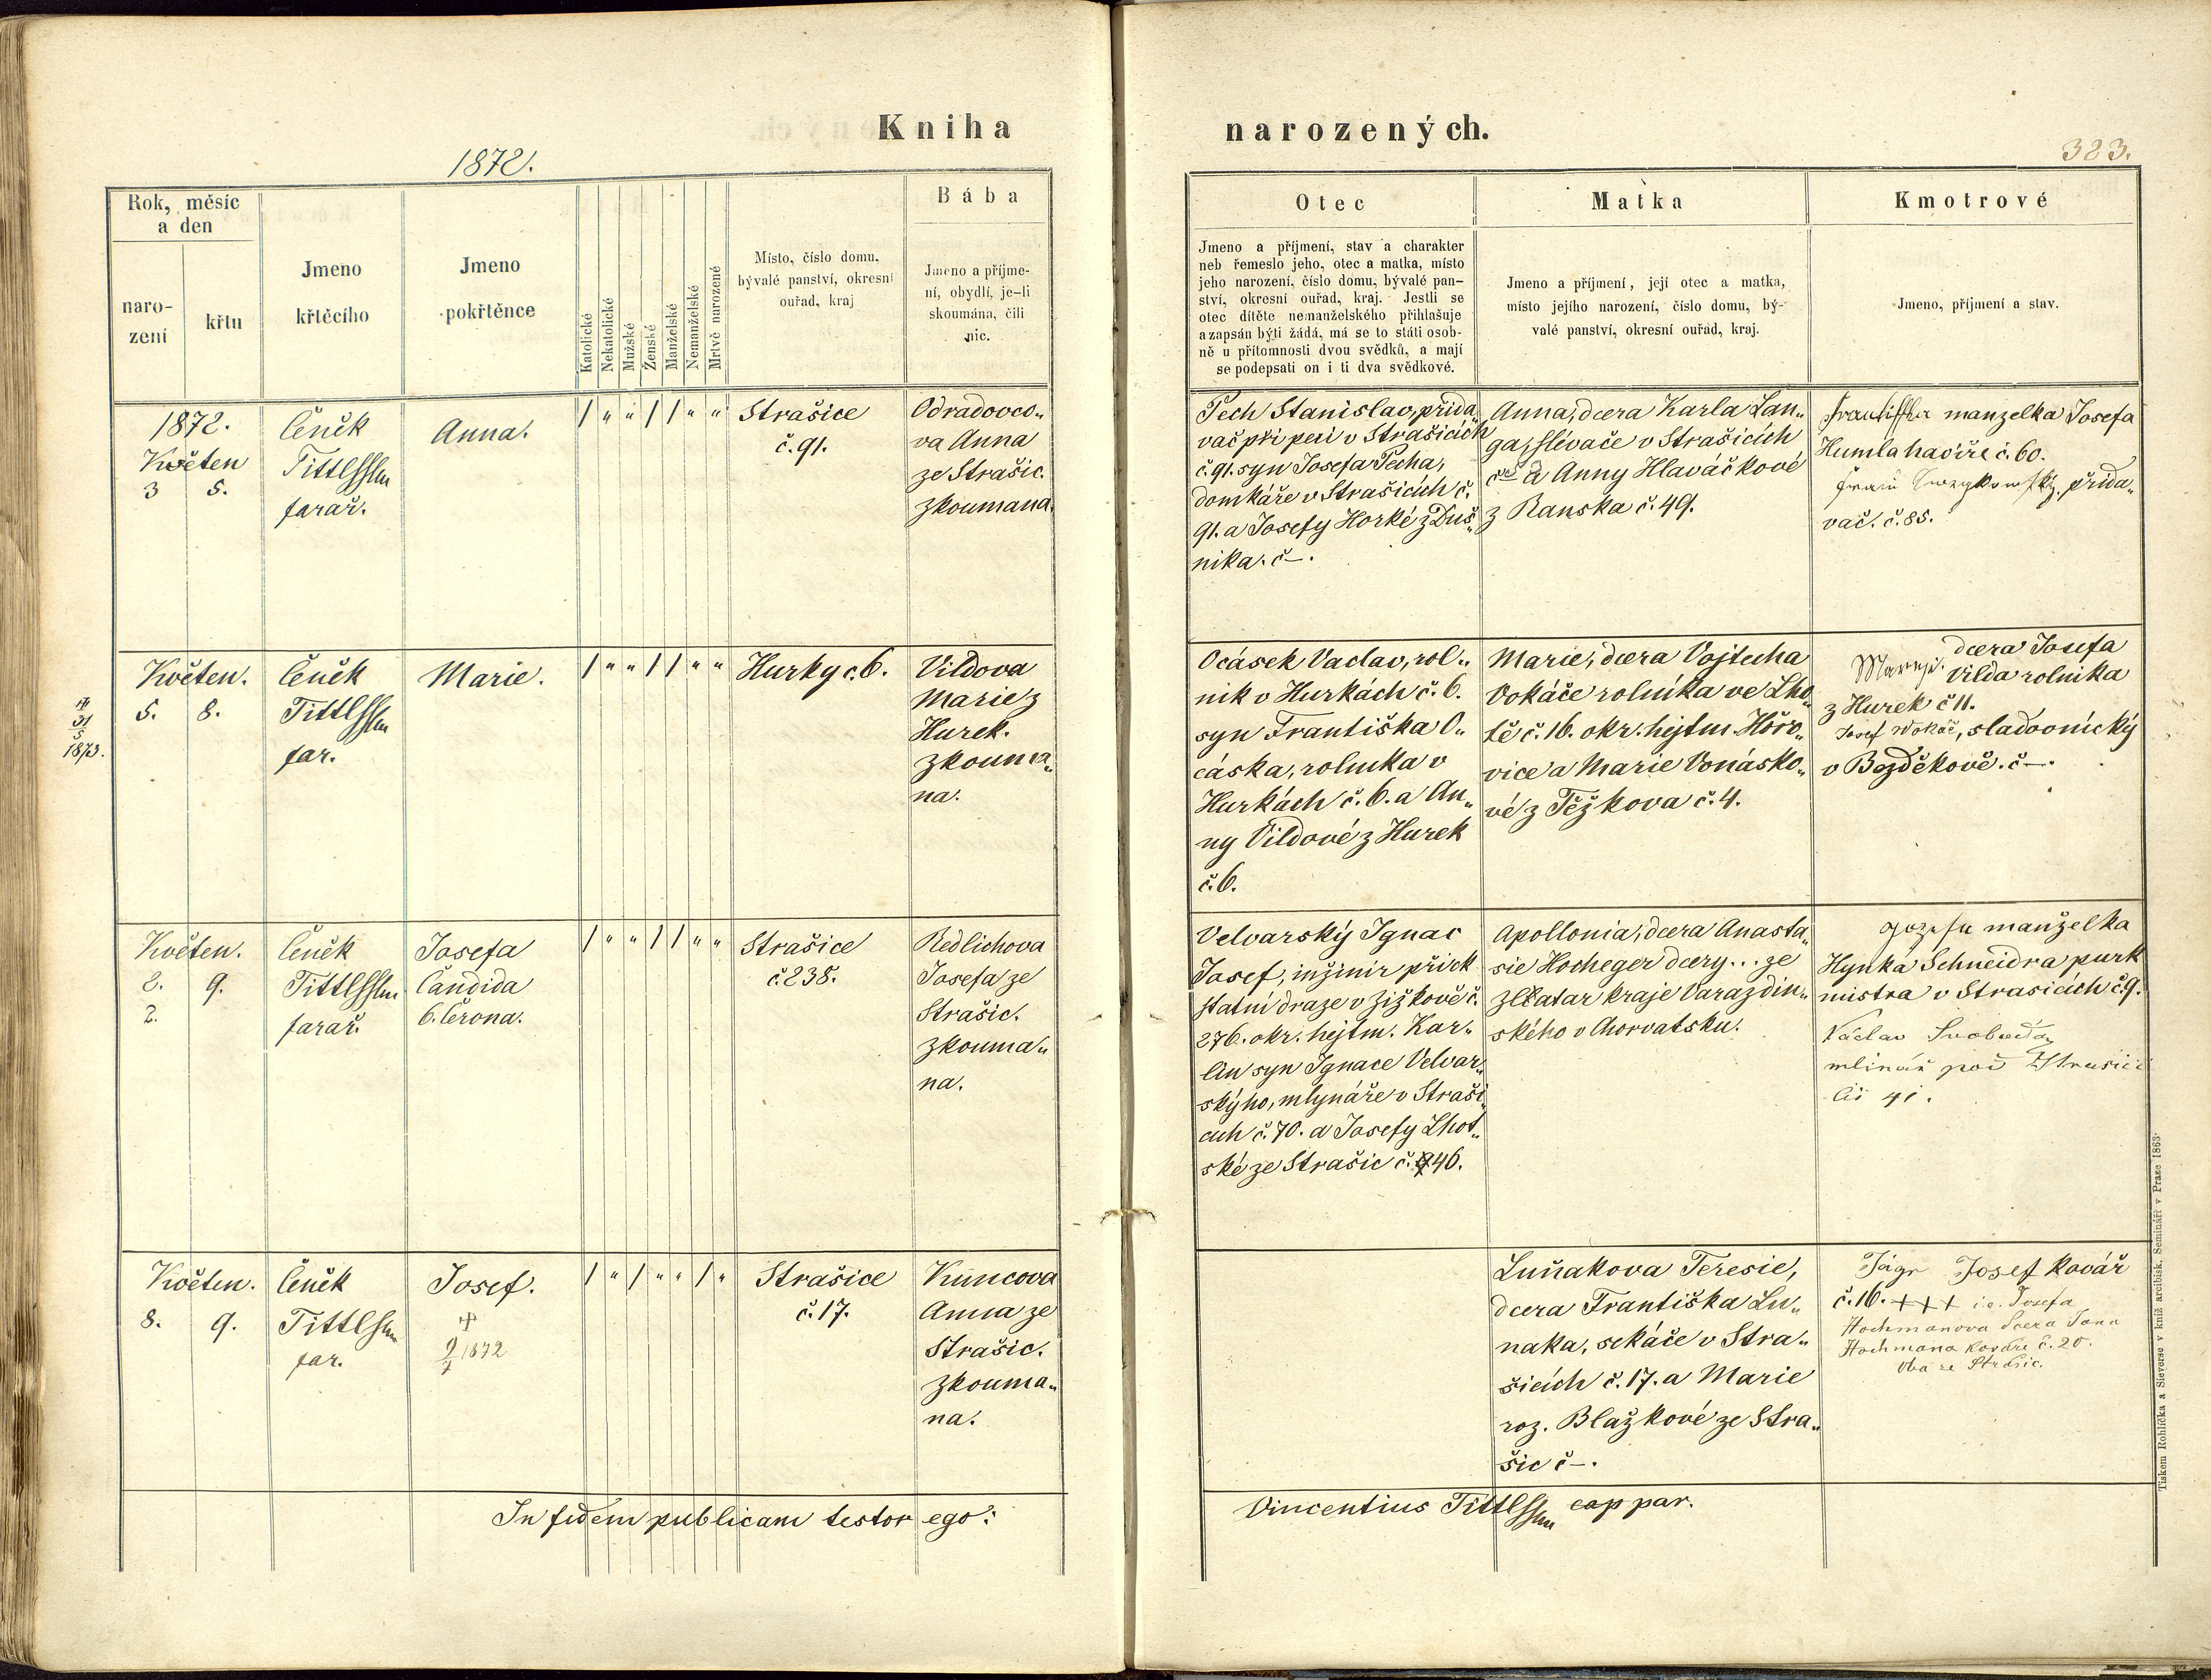 Kniha
1872.
Rok, měsíc
a den
naro-
zení
křtu
Jmeno
křtěcího
Jmeno
pokřtěnce
Katolické
Nekatolické
Mužské
Ženské
Manželské
Nemanželské
Mrtvě narozené
Místo, číslo domu,
bývalé panství, okresní
ouřad, kraj
Bába
Jmeno a příjme-
ní, obydlí, je-li
skoumána, čili
nic.
1872.
Květen
3 5.
Čeněk
Tittl
farář.
Anna.
/ " " / / " "
Strašice
č. 91.
Odradovco„
va Anna
ze Strašic.
zkoumana.
Květen.
5. 8.
31
5
1873.
Čeněk
Tittl
far.
Marie.
/ " " / / " "
Hurky č. 6.
Vildova
Marie z
Hurek.
zkouma„
na.
Květen.
2. 9.
2.
Čeněk
Tittl
farář.
Josefa
Candida
6. Čerona.
/ " " / / " "
Strašice
č. 238.
Redlichova
Josefa ze
Strašic.
zkouma„
na.
Květen.
8. 9.
Čeněk
Tittl
far.
Josef.
9/7 1872
/ " / " " / "
Strašice
č. 17.
Kuncova
Anna ze
Strašic.
zkouma„
na.
In fidem publicam testor ego:
narozených.
323.
Otec
Jmeno a příjmení, stav a charakter
neb řemeslo jeho, otec a matka, místo
jeho narození, číslo domu, bývalé pan-
ství, okresní ouřad, kraj. Jestli se
otec dítěte nemanželského přihlašuje
a zapsán býti žádá, má se to státi osob-
ně u přítomnosti dvou svědků, a mají
se podepsati on i ti dva svědkové.
Matka
Jmeno a příjmení, její otec a matka,
místo jejího narození, číslo domu, bý-
valé panství, okresní ouřad, kraj.
Kmotrové
Jmeno, příjmení a stav.
Pech Stanislav, přida„
vač při peci v Strašicích
č. 91. syn Josefa Pecha,
domkáře v Strašicích č.
91. a Josefy Horké z Duš„
nika. č–.
Anna, dcera Karla Lan„
ga, slívače v Strašicích
a Anny Hlaváčkové
z Ranska č. 49.
manzelka Josefa
Humla haviře č. 60.
přida„
vač. č. 85.
Ocásek Vaclav, rol„
nik v Hurkách č. 6.
syn Františka O„
cáska, rolnika v
Hurkách č. 6. a An„
ny Vildové z Hurek
č. 6.
Marie, dcera Vojtecha
Vokáče rolníka ve Lho„
tě č. 16. okr. hejtm. Hořo„
vice a Marie Vonásko„
vé z Těžkova č. 4.
dcera Josefa
Vilda rolnika
z Hurek č 11.
Josef Wokáč, sladovnický
v Bezděkově. č–.
Velvarský Ignac
Josef, inžinir při ck
statní draze v Zižkově č.
276. okr. hejtm. Kar„
lin syn Ignace Velvar„
skýho, mlynáře v Straši„
cích č. 70. a Josefy Lhot„
ské ze Strašic č. 46.
Apollonia, dcera Anasta„
sie Hocheger dcery... ze
Zlatar kraje Varazdin„
ského v Chorvatsku.
Jozefa manželka
Hynka Schneidra purk
mistra v Strasicích č. 9.
Václav Svoboda
mlinář pod Strasici
čís 41.
Luňakova Teresie,
dcera Františka Lu„
naka, sekáče v Stra„
šicích č. 17. a Marie
roz. Blažkové ze Stra„
šic č–.
Jágr Josef kovář
č. 16. +++ i.e. Josefa
Hochmanova dcera Jana
Hochmana kováře č. 20.
oba ze Strašic.
Vincentius Tittl cap par.
Tiskem Rohlíčka a Sieverse v kníž. arcibisk. Semináři v Praze 1863.